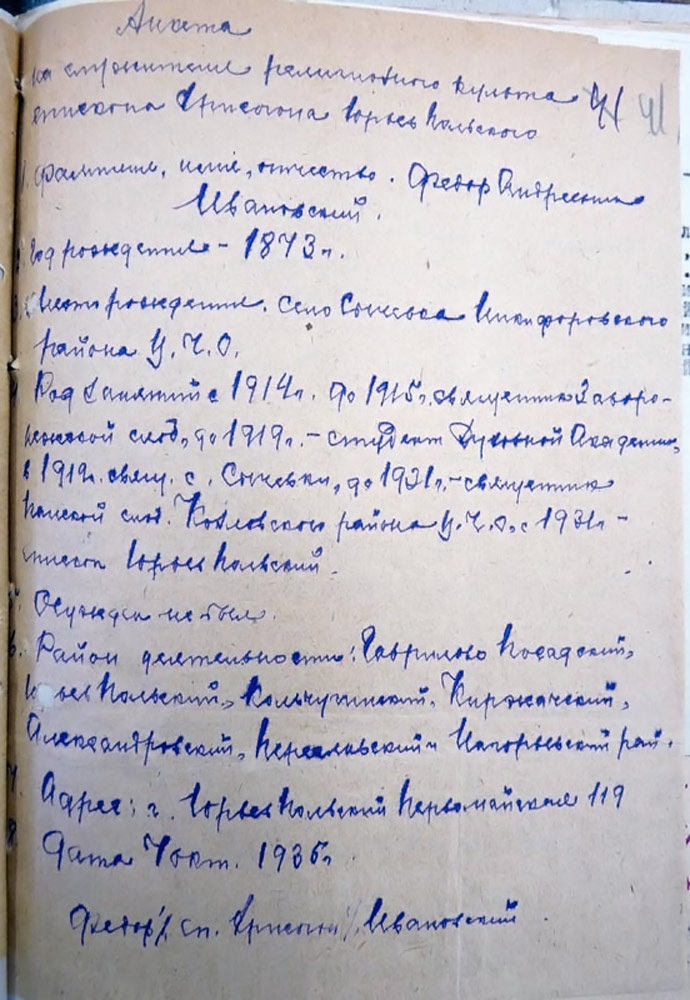 Анкета
на служителя религиозного культа 41 41
епископа Хрисогона Юрьев Польского
1. Фамилия, имя, отчество. Федор Андреевич
Ивановский.
Год рождения - 1873 г.
Место рождения. Село Сычевка Никифоровского
района Ц.Ч.О.
Род занятий с 1914 г. до 1915 г. священник Заворо-
нежской слоб., до 1919 г. - студент Духовной Академии,
с 1919 г. свящ. с. Сычевки, до 1931 г. - священник
слоб. Козловского района Ц.Ч.О. с 1931 г -
епископ Юрьев Польский.
5. Осужден не был.
6. Район деятельности: Гаврилово Посадский,
Юрьев Польский, Кольчугинский, Киржачский,
Александровский, Переяславский и Нагорьевский рай.
7. Адрес: г. Юрьев Польский Первомайская 119
8. Дата 7 окт. 1935 г.
Федор /еп. Хрисогон/ Ивановский